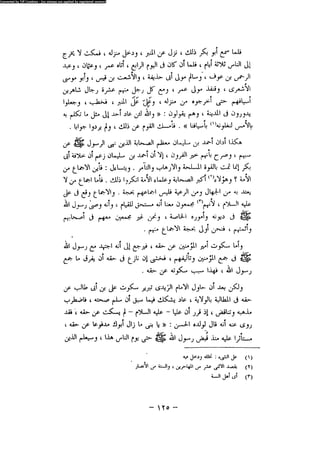 فلما سمع أبو بكر ذلك ، نزل عن المنبر ، ودخل منزله ، فمكث لا يخرج
إلى الناس ثلاثة أيام ، فلما كان في اليوم الرابع ، أتاه عمر ، وعثمان ، وعبد
الرحمن بن عوف ، ومولى أبي حذيفة ، والأشعث بن قيس ، وأبو موسى
الأشعري ، وقنفذ مولى عمر ، ومع كل رجل منهم عشرة رجال شاهرين
أسيافهم حتى أخرجوه من منزله ، وعلا المنبر ، فخطب ، وجعلوا
يدورون في المدينة ، وهم يقولون : « والله لئن عاد أحد إلى مثل ما تكلم به
بالأمس لنعلونه(١) بأسيافنا » . فأمسك القوم عن ذلك ، ولم يردوا جوابا .
هكذا أدان أحمد بن سليمان معظم الصحابة الذين نهى رسول الله ﷺ عن
سبهم ، وصرح بأنهم خير القرون ، إلا أن أحمد بن سليمان زعم أن خلافة أبي
بكر إنما تمت بالقوة المسلحة والإرهاب والتآمر . ويتساءل : فأين الإجماع من
هؤلاء(٢) ؟ وأكثر الصحابة وعلماء الأمة أنكروا ذلك . فأما إجماع من لا
يعتد به من الجهال ومن الرعية فليس اجماعهم بحجة . والإجماع وقع في علي
عليه السلام ، لأنهم(٣) أجمعوا معنا أنه مستحق للقيام ، وأنه وصي رسول الله
ﷺ في ديونه وأموره الخاصة ، ونحن غير مجمعين معهم في أصحابهم
وأئمتهم ، فنحن أولى بحجة الإجماع منهم .
وأما سكوت أمير المؤمنين عن حقه ، فيرجع إلى أنه اجتهد مع رسول الله
ﷺ في جمع المؤمنين وتأليفهم ، فخشي إن نازع في حقه أن يفرق ما جمع
رسول الله ، فهذا سبب سكوته عن حقه .
ولكن بعد أن حاول الإمام الزيدي تبرير سكوت علي بن أبي طالب عن
حقه في المطالبة بالولاية ، عاد ليشكك فيما سبق أن سلم بصحته ، فاضطرب
مذهبه وتناقض ، إذ قرر أن عليا – عليه السلام – لم يسكت عن حقه ، فقد
روى عنه أنه قال لولده الحسن : « يا بني ما زال أبوك مدفوعا عن حقه ،
مستأثرا عليه منذ قُبض رسول الله ﷺ حتى يوم الناس هذا ، ويعلم الذين
(١) علي الشيء : تخلله ودخل فيه
(٢) يقصد الاثنى عشر من المهاجرين ، والستة من الأنصار
(٣) أي أهل السنة
– ١٢٥ –